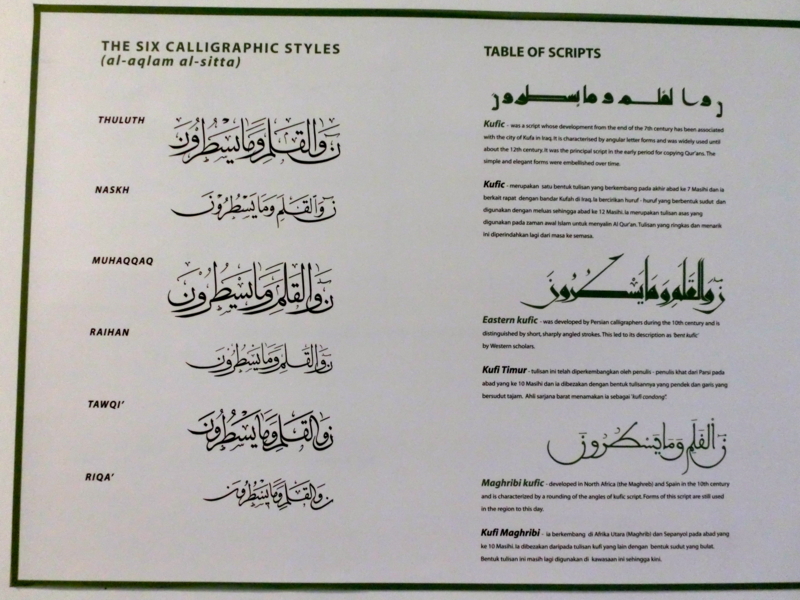 THE SIX CALLIGRAPHIC STYLES
(al-aqlam al-sitta)
THULUTH
ن وَالْقَلَمِ وَمَا يَسْطُرُونَ
NASKH
ن وَالْقَلَمِ وَمَا يَسْطُرُونَ
MUHAQQAQ
ن وَالْقَلَمِ وَمَا يَسْطُرُونَ
RAIHAN
ن وَالْقَلَمِ وَمَا يَسْطُرُونَ
TAWQI'
ن وَالْقَلَمِ وَمَا يَسْطُرُونَ
RIQA'
ن وَالْقَلَمِ وَمَا يَسْطُرُونَ
TABLE OF SCRIPTS
ن والقلم وما يسطرون
Kufic - was a script whose development from the end of the 7th century has been associated
with the city of Kufa in Iraq. It is characterised by angular letter forms and was widely used until
about the 12th century. It was the principal script in the early period for copying Qur'ans. The
simple and elegant forms were embellished over time.
Kufic - merupakan satu bentuk tulisan yang berkembang pada akhir abad ke 7 Masihi dan ia
berkait rapat dengan bandar Kufah di Iraq. Ia bercirikan huruf - huruf yang berbentuk sudut dan
digunakan dengan meluas sehingga abad ke 12 Masihi. Ia merupakan tulisan asas yang
digunakan pada zaman awal Islam untuk menyalin Al Qur'an. Tulisan yang ringkas dan menarik
ini diperindahkan lagi dari masa ke semasa.
ن وَالْقَلَمِ وَمَا يَسْطُرُونَ
Eastern kufic - was developed by Persian calligraphers during the 10th century and is
distinguished by short, sharply angled strokes. This led to its description as 'bent kufic'
by Western scholars.
Kufi Timur - tulisan ini telah diperkembangkan oleh penulis - penulis khat dari Parsi pada
abad yang ke 10 Masihi dan ia dibezakan dengan bentuk tulisannya yang pendek dan garis yang
bersudut tajam. Ahli sarjana barat menamakan ia sebagai 'kufi condong'.
ن وَالْقَلَمِ وَمَا يَسْطُرُونَ
Maghribi kufic - developed in North Africa (the Maghreb) and Spain in the 10th century
and is characterized by a rounding of the angles of kufic script. Forms of this script are still used
in the region to this day.
Kufi Maghribi - ia berkembang di Afrika Utara (Maghrib) dan Sepanyol pada abad yang
ke 10 Masihi. Ia dibezakan daripada tulisan kufi yang lain dengan bentuk sudut yang bulat.
Bentuk tulisan ini masih lagi digunakan di kawasaan ini sehingga kini.